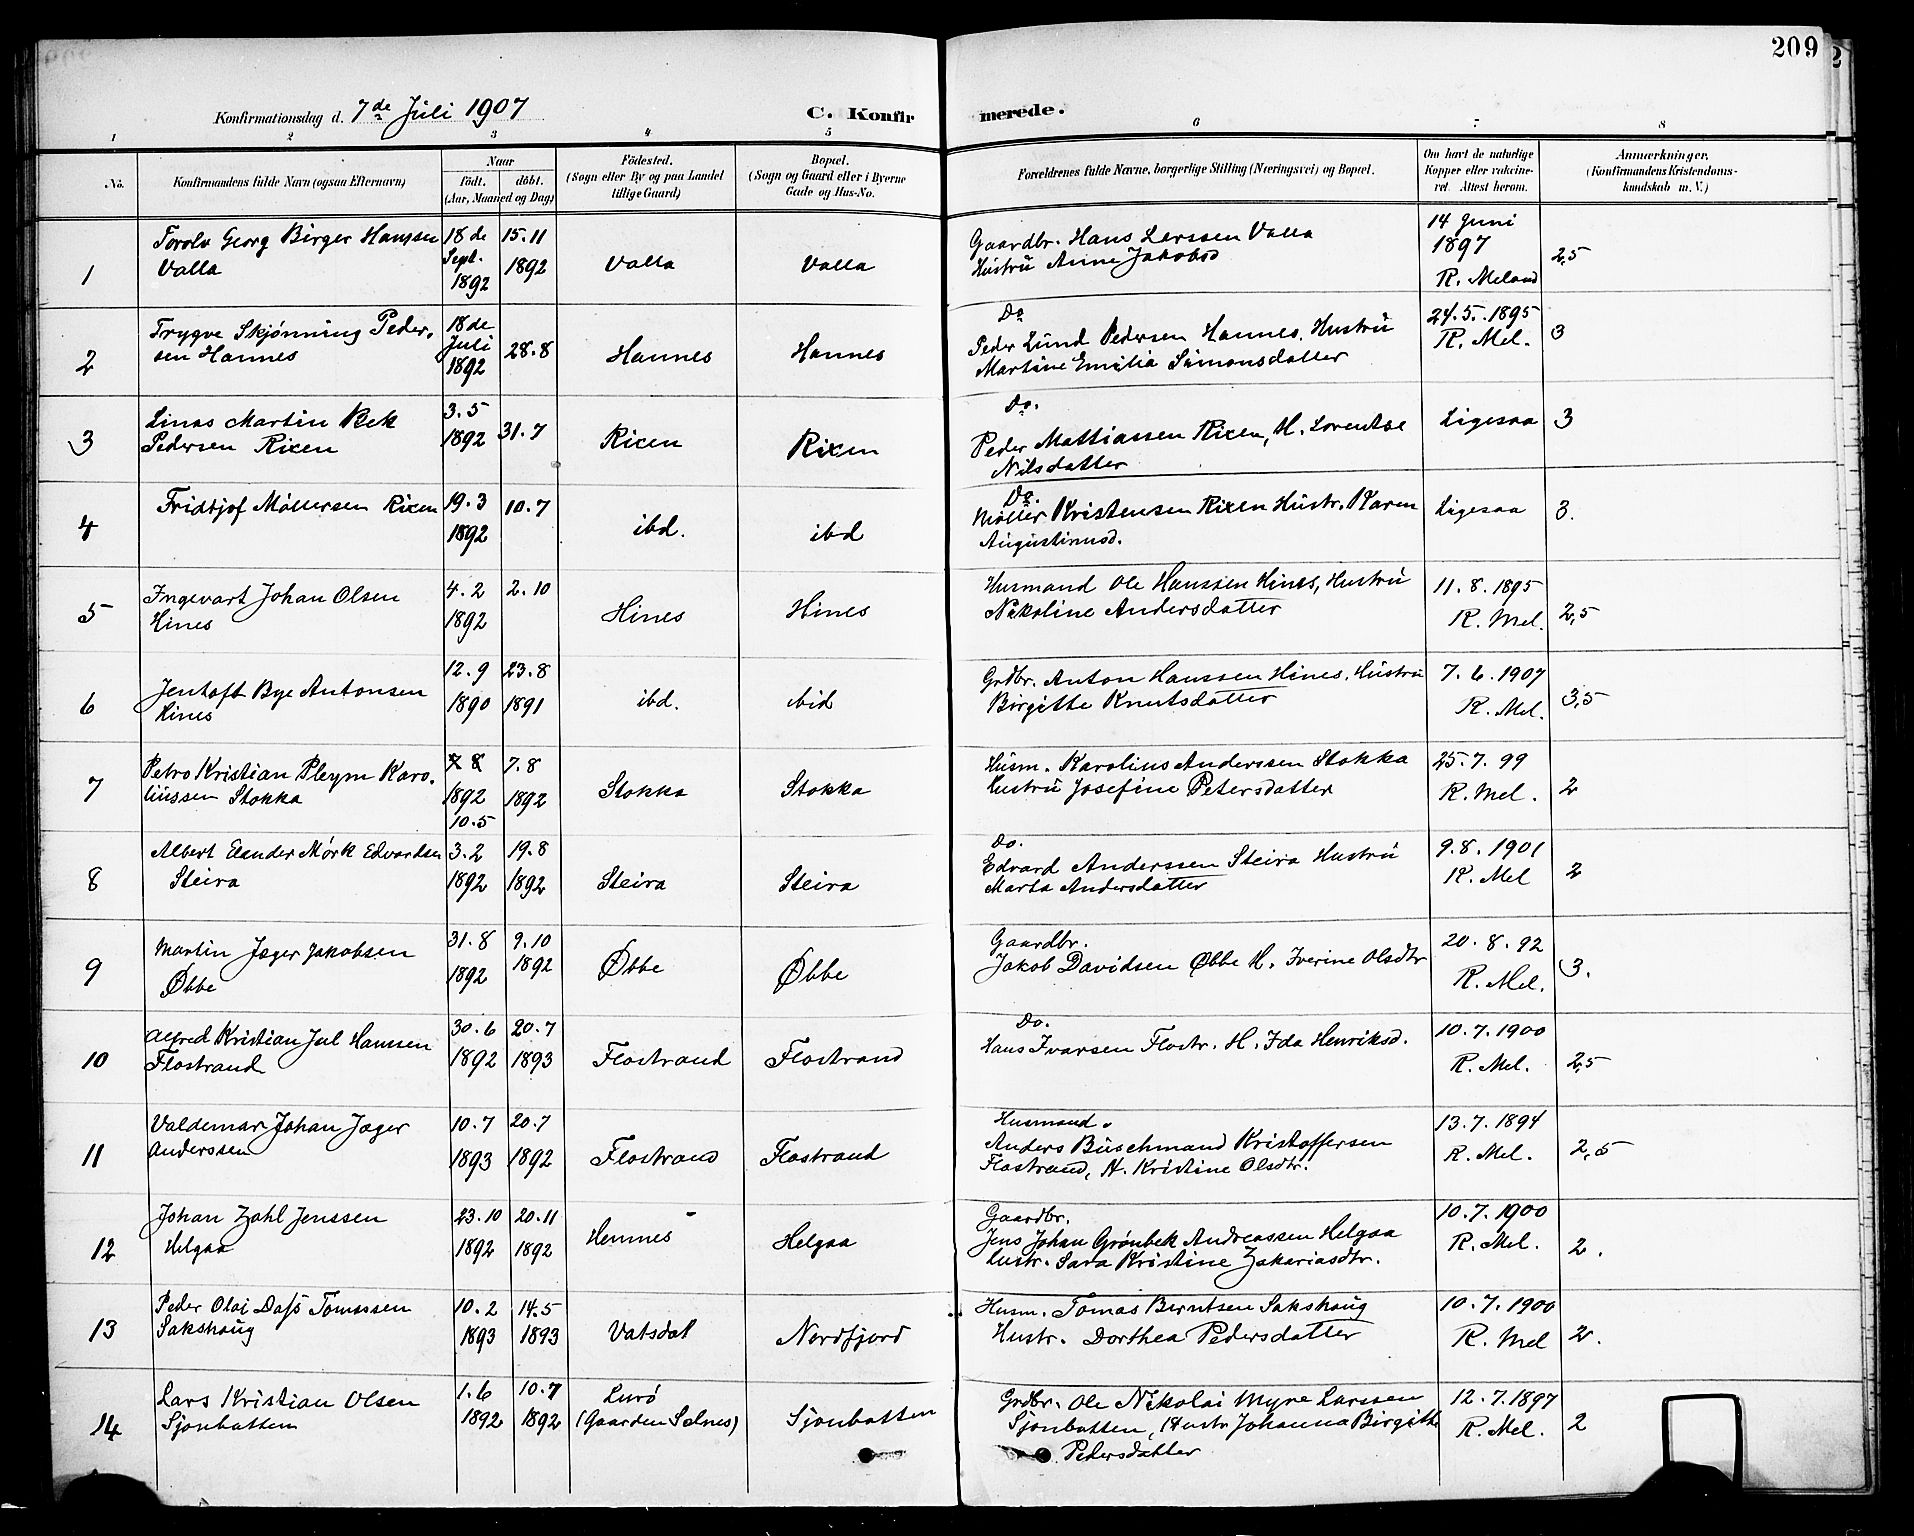 209
Konfirmationsdag d. 7de Juli 1907
C. Konfirmerede.
1 2 3 4 5 6 7 8
No.
Konfirmandens fulde Navn (ogsaa Efternavn)
Naar
födt. döbt.
(Aar, Maaned og Dag)
Födested.
(Sogn eller By og paa Landet
tillige Gaard)
Bopæl.
(Sogn og Gaard eller i Byerne
Gade og Hus-No.
Forældrenes fulde Navne, borgerlige Stilling (Næringsvei) og Bopæl.
Om havt de naturlige
Kopper eller vaccine-
ret. Attest herom.
Anmærkninger,
(Konfirmandens Kristendoms-
kundskab m. V.)
1 Torolv Georg Birger Hanssen
Valla
18de
Sept.
1892
15.11
1892
Valla
Valla
Gaardbr. Hans Larssen Valla
Hustrü Anne Jakobsd
14 Juni
1897
R. Meland
2,5
2 Trygve Skjønning Peder-
sen Hannes
18de
Juli
1892
28.8
Hannes
Hannes
Do
Peder Lund Pedersen Hannes, Hustrü
Martine Emilia Simonsdatter
24.5.1895
R. Mel.
3
3 Linas Martin Rek
Pedersen Rixen
3.5
1892
31.7
Rixen
Rixen
Do.
Peder Mattiassen Rixen, H. Lorentse
Nilsdatter
Ligesaa
3
4 Fridtjof Møllersen Rixen
19.3
1892
10.7
ibd.
ibd
Do.
Møller Kristensen Rixen Hustr. Karen
Augustinusd.
Ligesaa
3.
5 Ingevart Johan Olsen
Hines
4.2
1892
2.10
Hines
Hines
Husmand Ole Hanssen Hines, Hustrü
Nikoline Andersdatter
11.8.1895
R. Mel.
2,5
6 Jentoft Bye Antonsen
Hines
12.9
1890
23.8
1891
ibd.
ibid
Grdbr. Anton Hanssen Hines, Hüstrü
Birgitte Knutsdatter
7.6.1907
R. Mel.
3,5
7 Petro Kristian Pleym Karo-
liüssen Stokka
7 8
1892
10.5
7.8
1892
Stokka
Stokka
Husm. Karolius Anderssen Stokka
Hustrü Josefine Petersdatter
25.7.99
R. Mel.
2
8 Albert Elender Mørk Edvardsen
Steira
3.2
1892
19.8
1892
Steira
Steira
Do.
Edvard Anderssen Steira Hustrü
Marta Andersdatter
9.8.1901
R. Mel
2
9 Martin Jæger Jakobsen
Øbbe
31.8
1892
9.10
1892
Øbbe
Øbbe
Gaardbr.
Jakob Davidsen Øbbe H. Iverine Olsdtr
20.8.92
R. Mel.
3.
10 Alfred Kristian Jul Hanssen
Flostrand
30.6
1892
20.7
1893
Flostrand
Flostrand
Do.
Hans Ivarsen Flostr. H. Ida Henriksd.
10.7.1900
R. Mel.
2,5
11 Valdemar Johan Jæger
Anderssen
10.7
1893
20.7
1892
Flostrand
Flostrand
Husmand.
Anders Büschmand Kristoffersen
Flostrand, H. Kristine Olsdtr.
13.7.1894
R. Mel.
2,5
12 Johan Zahl Jenssen
Helgaa
23.10
1892
20.11
1892
Hemnes
Helgaa
Gaardbr.
Jens Johan Grønbek Andreassen Helgaa
Hustr. Sara Kristine Zakariasdtr.
10.7.1900
R. Mel.
2.
13 Peder Olai Dass Tomassen
Sakshaüg
10.2
1893
14.5
1893
Vatsdal
Nordfjord
Husm. Tomas Berntsen Sakshaüg
Hustr. Dorthea Pedersdatter
10.7.1900
R. Mel
2.
14 Lars Kristian Olsen
Sjonbotten
1.6
1892
10.7
1892
Lurö
(Gaarden Selnes)
Sjonbotten
Grdbr. Ole Nikolai Myre Larssen
Sjonbotten, Hustr Johanna Birgitte
Pedersdatter
12.7.1897
R. Mel.
2